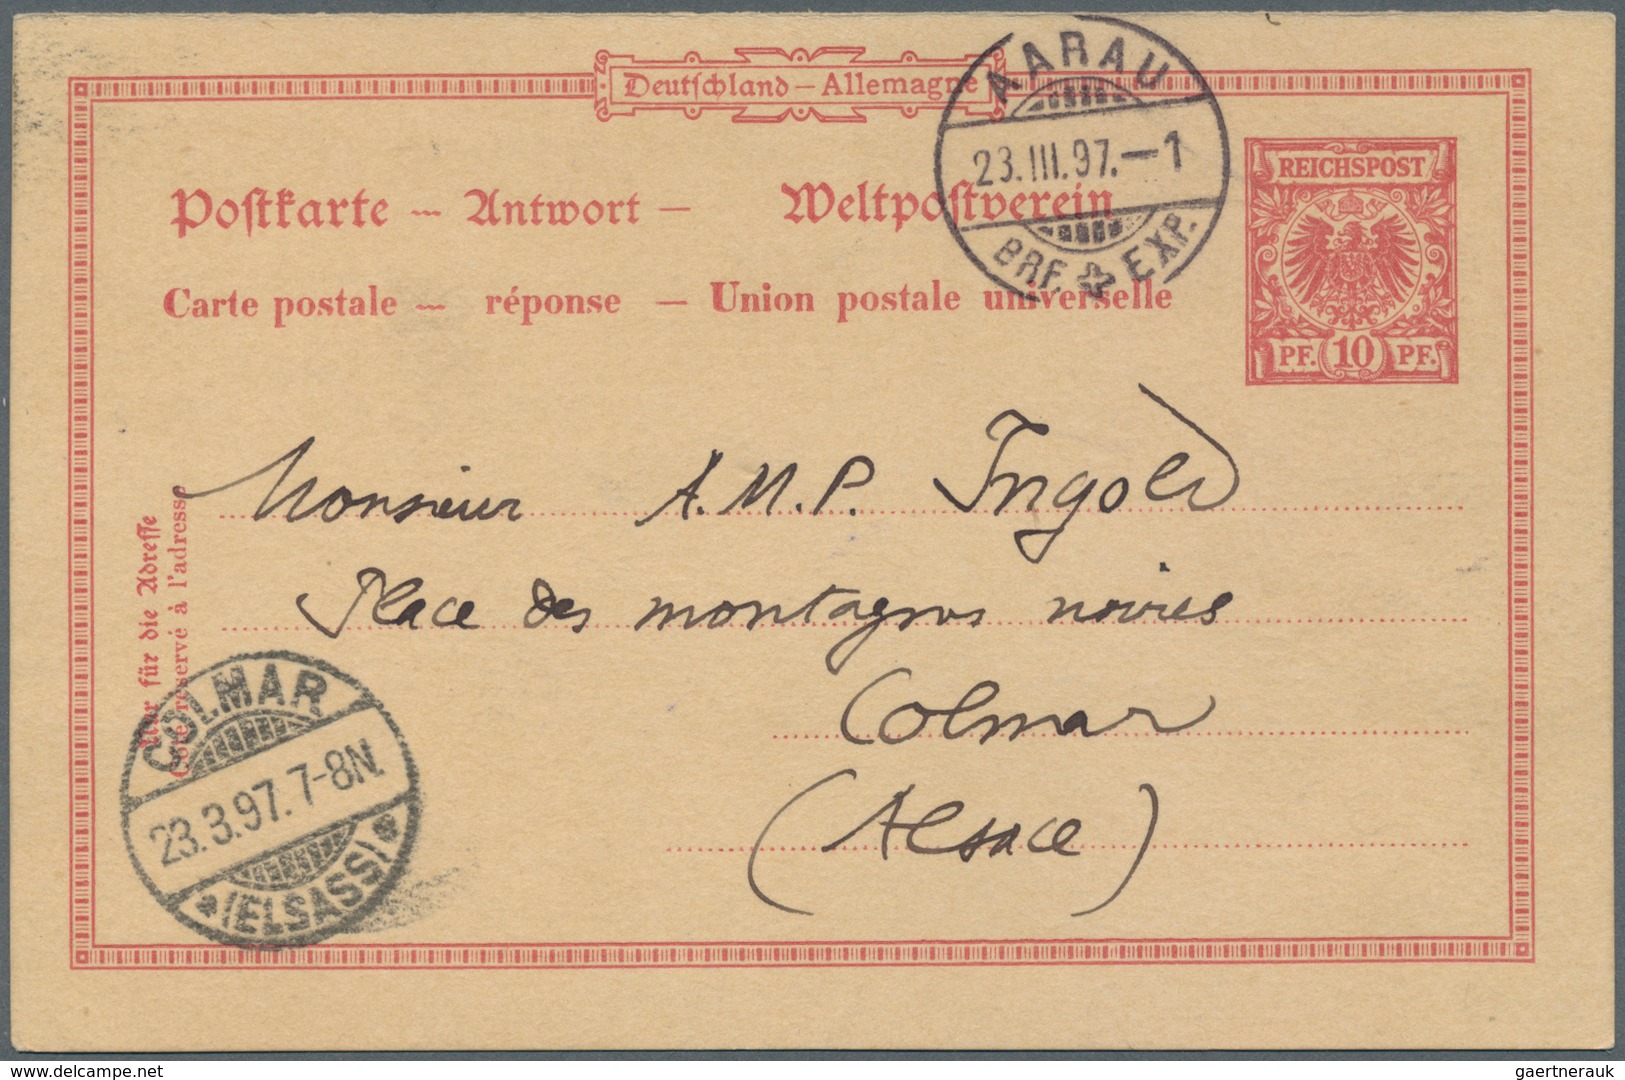 Deutschland – Allemagne
AARAU
23.III.97.–1
BRF. EXP.
REICHSPOST
PF. 10 PF.
Postkarte — Antwort — Weltpostverein
Carte postale — réponse — Union postale universelle
Nur für die Adresse
Côté réservé à l'adresse
Monsieur A. M. P. Ingold
Place des montagnes noires
Colmar
(Alsace)
COLMAR
23.3.97.7-8N.
(ELSASS)
www.delcampe.net
gaertnerauk